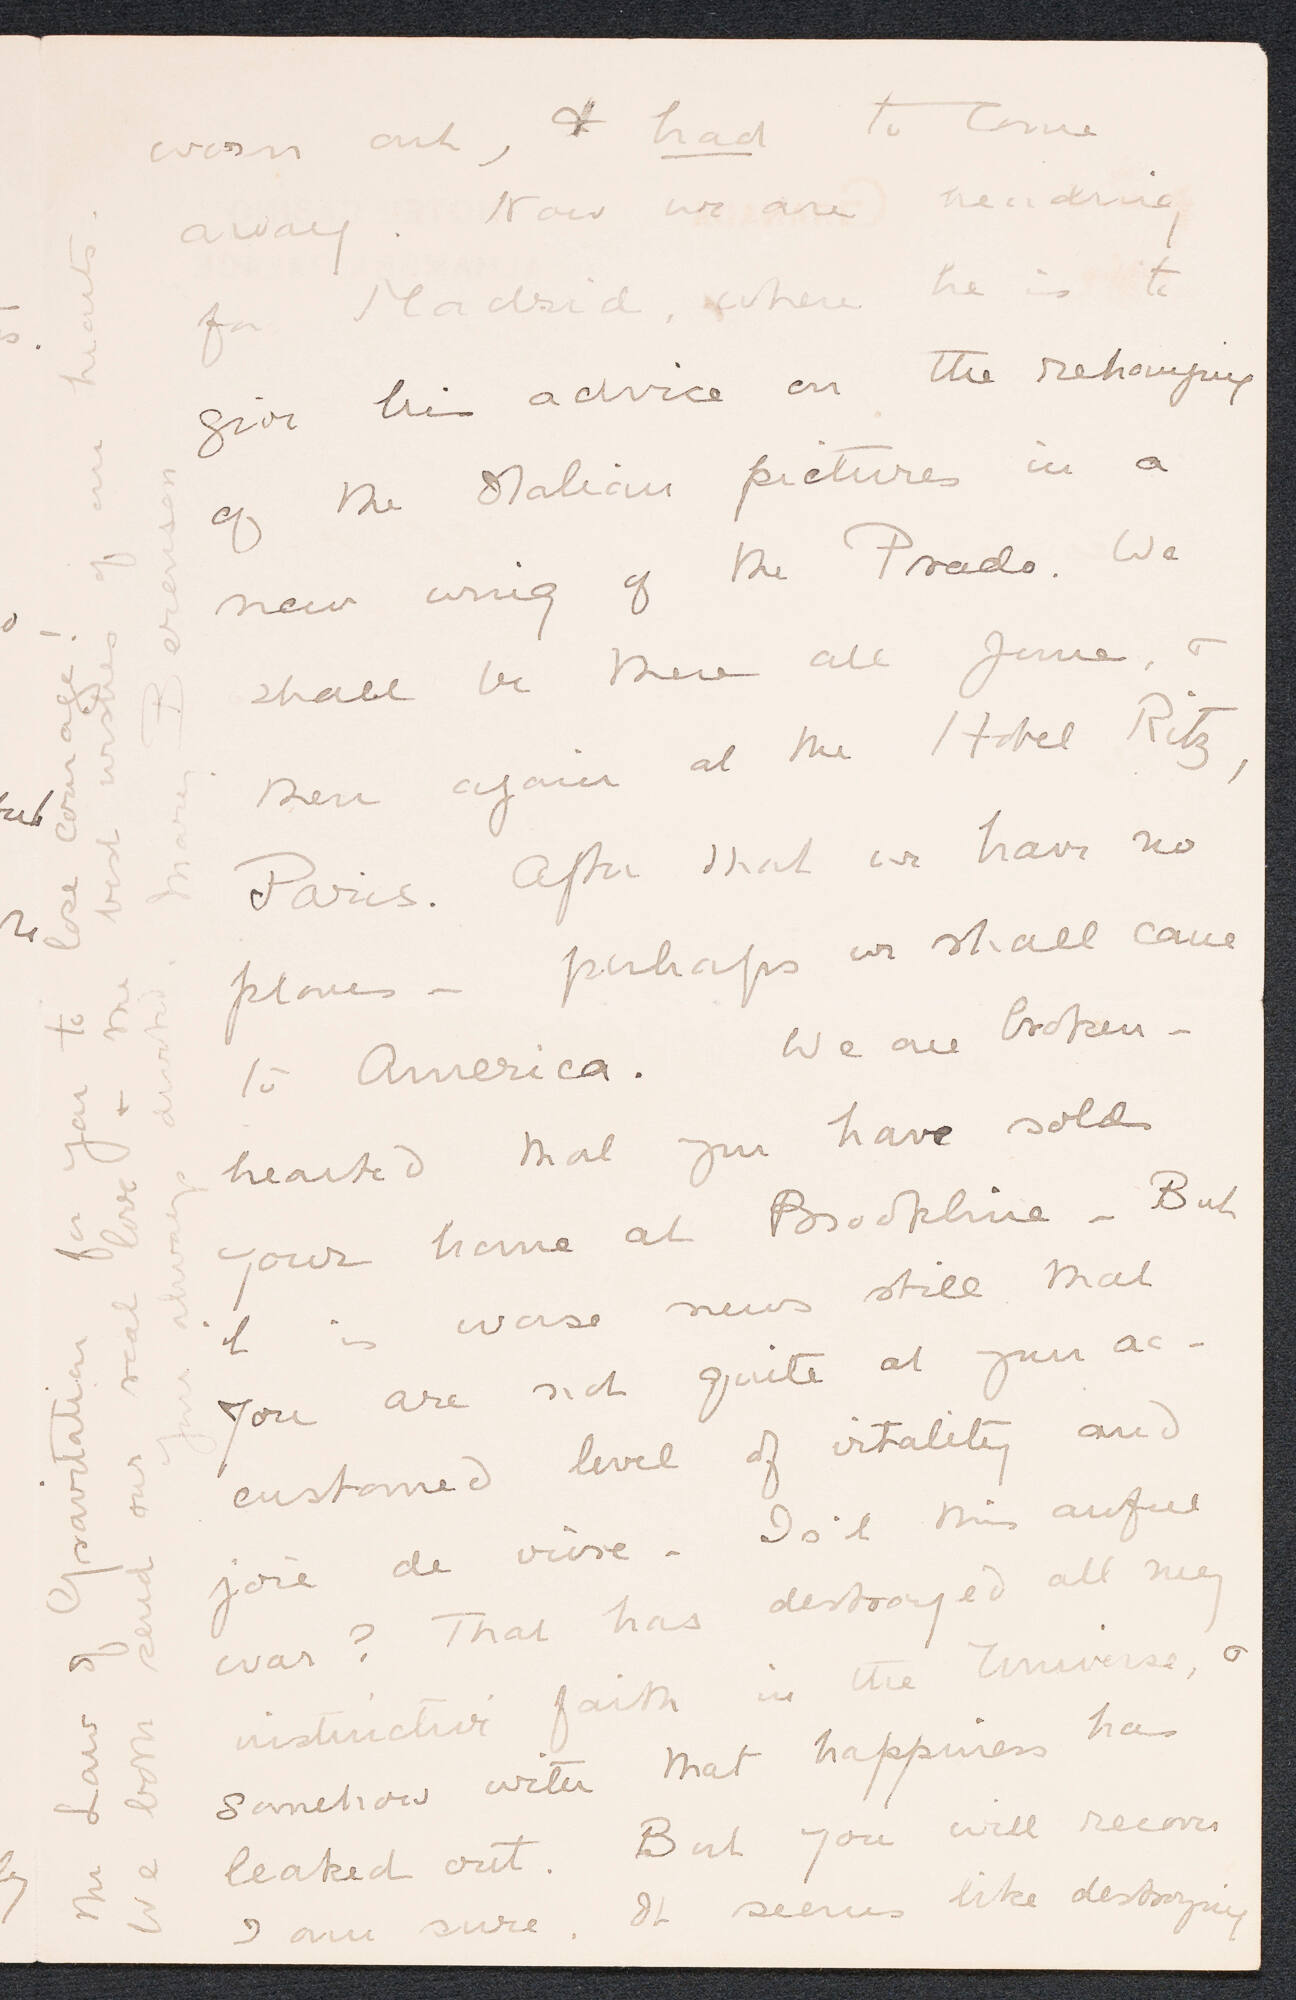 worn out, & had to come
away. Now we are heading
for Madrid, where he is to
give his advice on the rehanging
of the Italian pictures in a
new wing of the Prado. We
shall be there all June, &
then again at the Hotel Ritz,
Paris. After that we have no
plans – perhaps we shall come
to America. We are broken-
hearted that you have sold
your home at Brookline – But
it is worse news still that
you are not quite at your ac-
customed level of vitality and
joie de vivre – Is it this awful
war? That has destroyed all my
instinctive faith in the Universe, &
somehow with that happiness has
leaked out. But you will recover
I am sure. It seems like destroying
the Law of Gravitation for you to lose courage!
We both send our real love & the best wishes of our hearts.
Yours always devoted, Mary Berenson